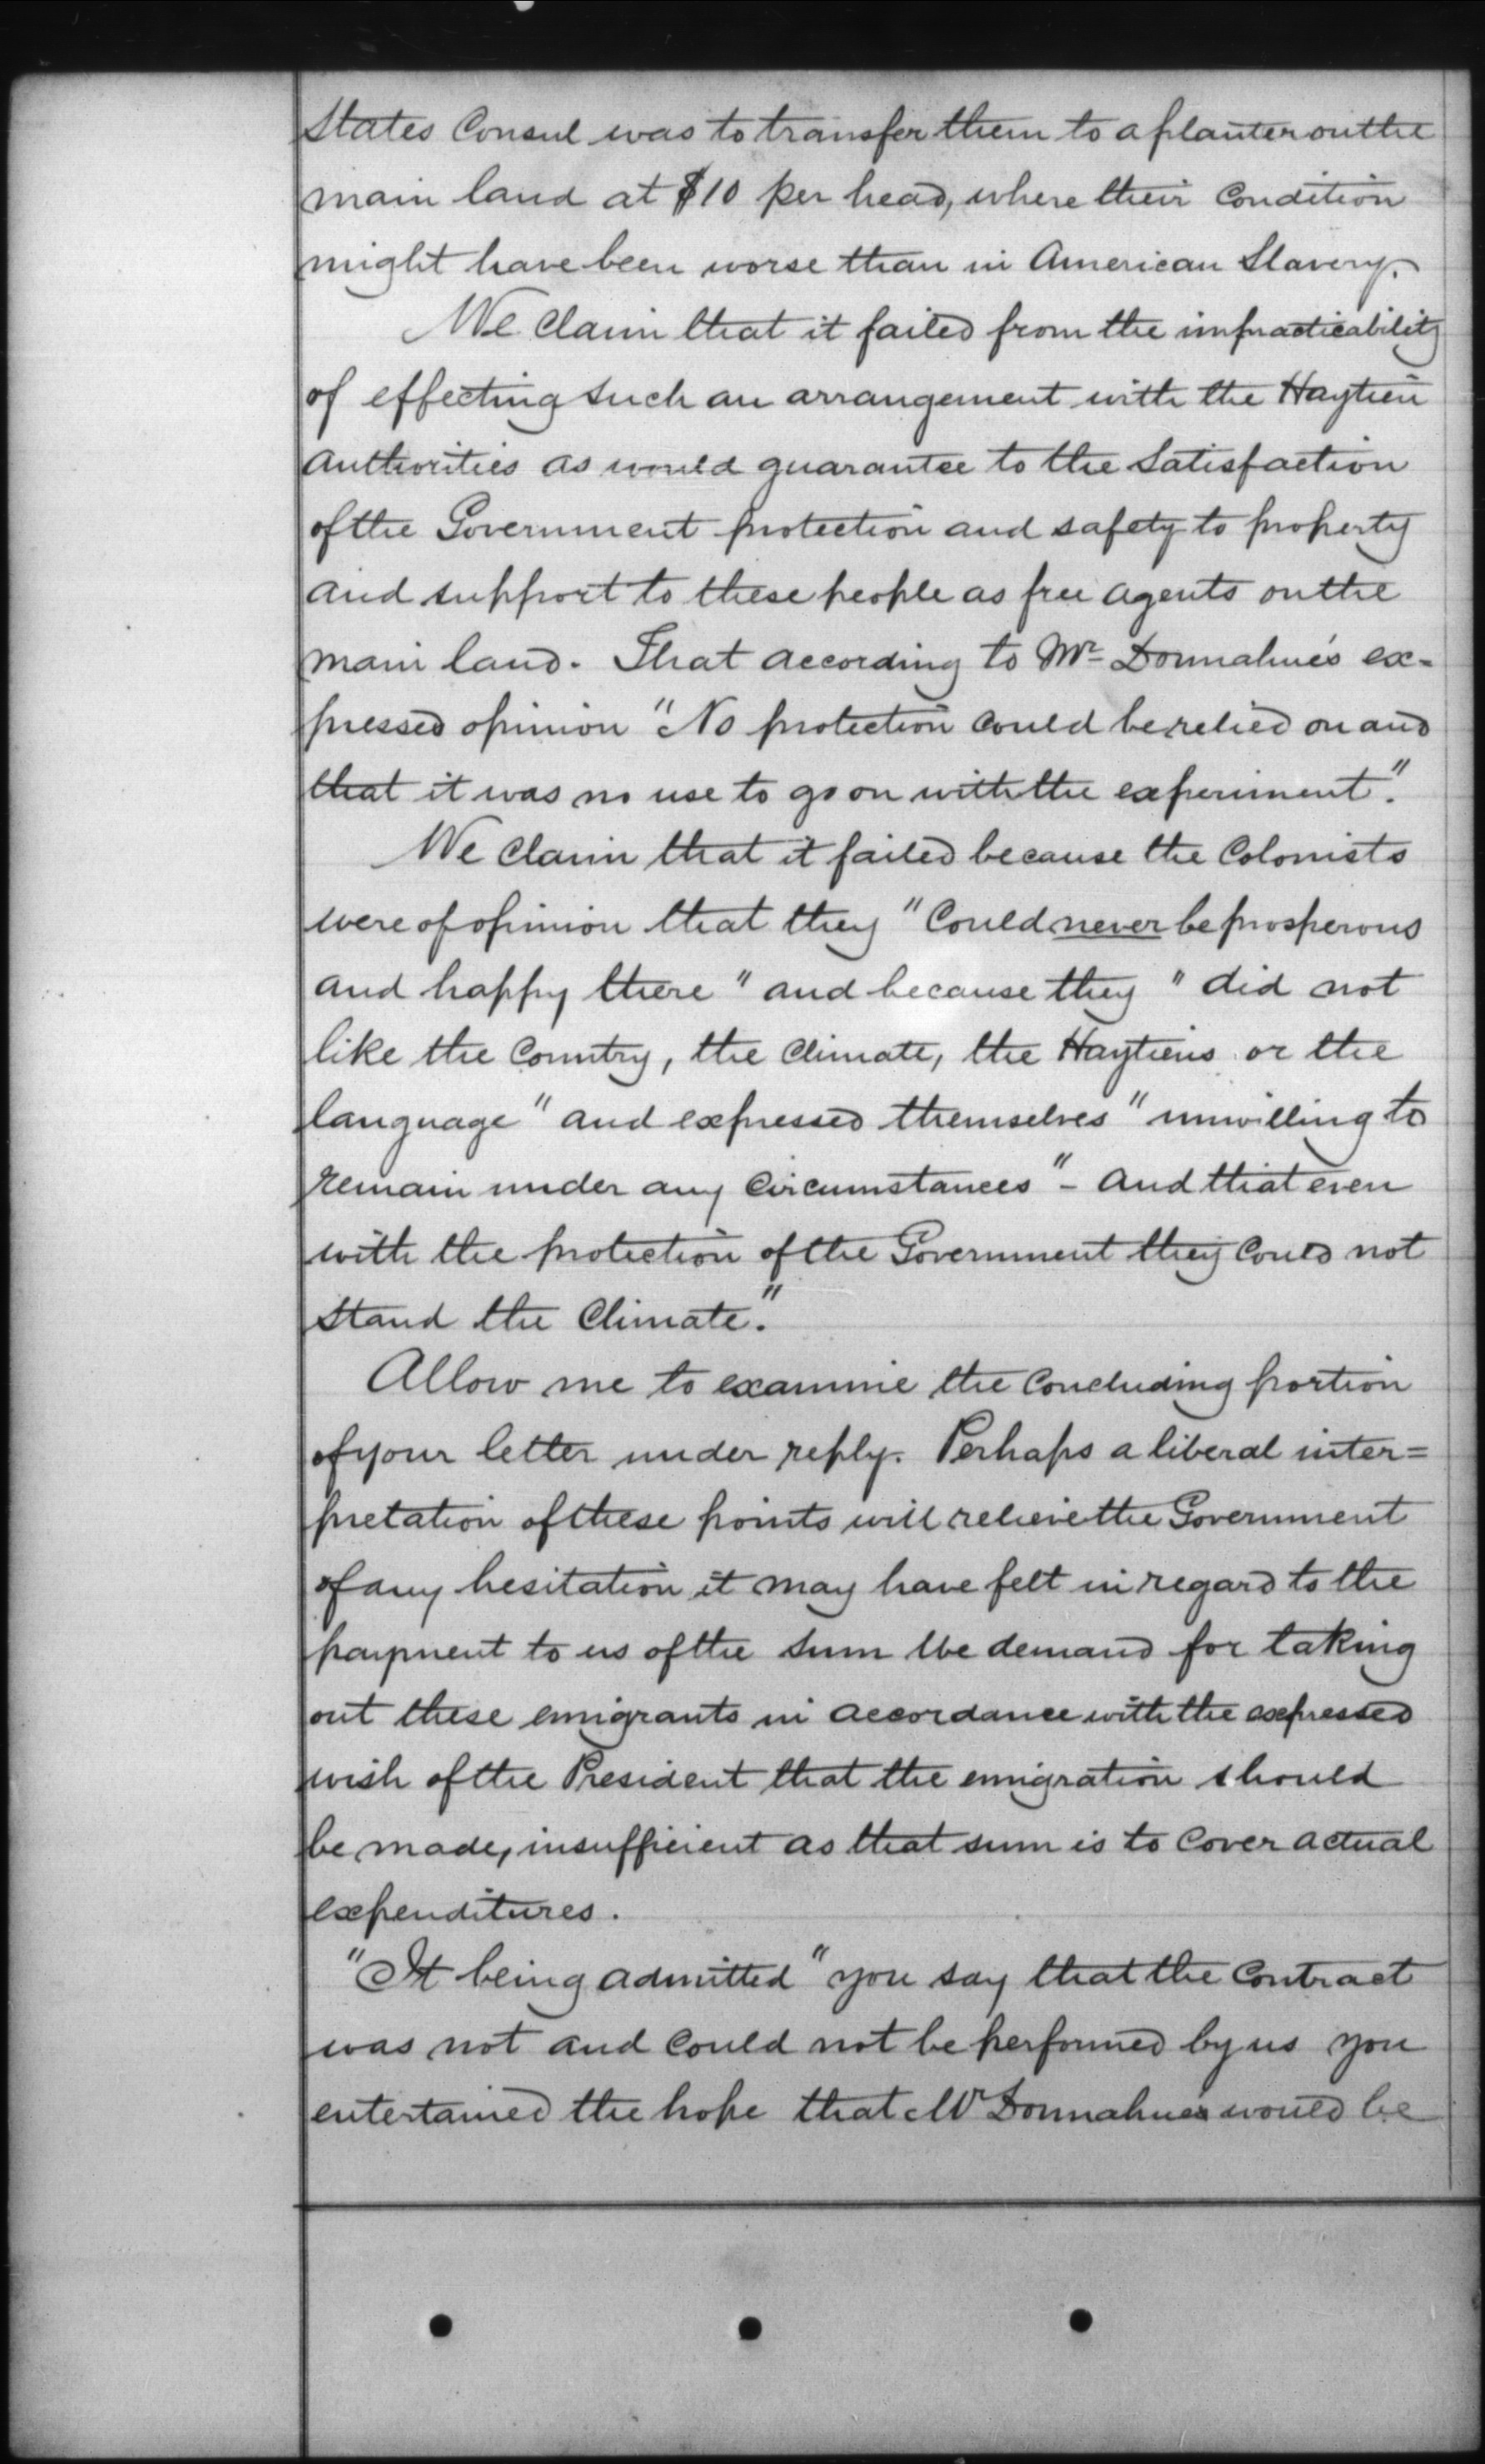 States Consul was to transfer them to a planter on the
main land at $10 per head, where their Condition
might have been worse than in American Slavery.
We Claim that it failed from the impracticability
of effecting such an arrangement with the Haytien
Authorities as would guarantee to the Satisfaction
of the Government protection and safety to property
and support to these people as free agents on the
main land. That according to Mr Donnahue's ex-
pressed opinion "No protection could be relied on and
that it was no use to go on with the experiment."
We Claim that it failed because the Colonists
were of opinion that they "Could never be prosperous
and happy there" and because they "did not
like the Country, the Climate, the Haytiens or the
language" and expressed themselves "unwilling to
remain under any Circumstances" - And that even
with the protection of the Government they Could not
Stand the Climate."
Allow me to examine the Concluding portion
of your letter under reply. Perhaps a liberal inter=
pretation of these points will relieve the Government
of any hesitation it may have felt in regard to the
payment to us of the Sum We demand for taking
out these emigrants in accordance with the expressed
wish of the President that the emigration should
be made, insufficient as that sum is to Cover actual
expenditures.
"It being admitted" you say that the Contract
was not and Could not be performed by us you
entertained the hope that Mr Donnahue would be